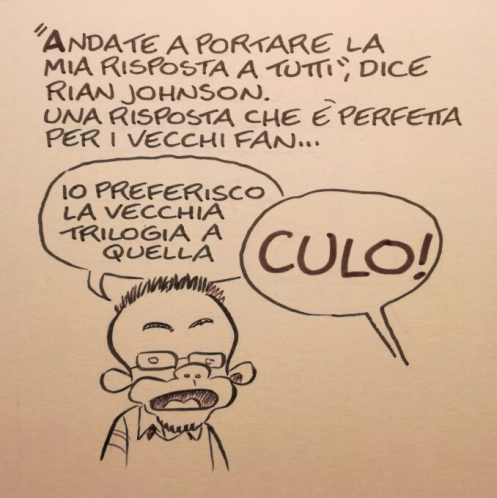 "ANDATE A PORTARE LA
MIA RISPOSTA A TUTTI", DICE
RIAN JOHNSON.
UNA RISPOSTA CHE È PERFETTA
PER I VECCHI FAN...
IO PREFERISCO
LA VECCHIA
TRILOGIA A
QUELLA
CULO!